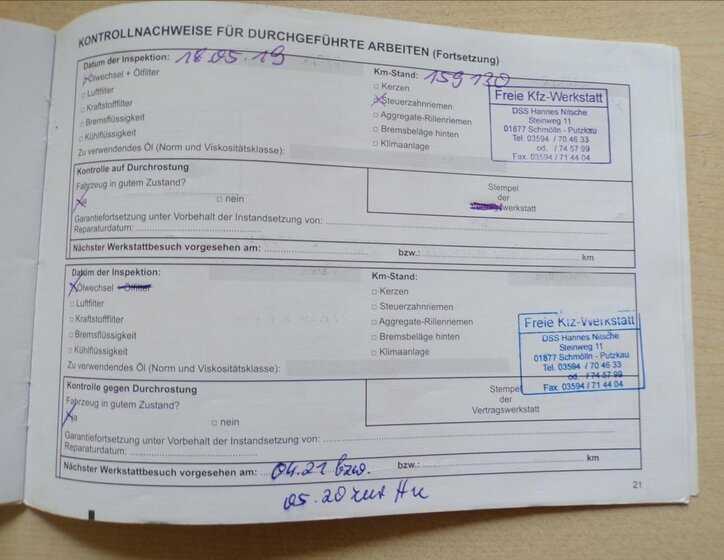 KONTROLLNACHWEISE FÜR DURCHGEFÜHRTE ARBEITEN (Fortsetzung)
Datum der Inspektion: 18.05.19 Km-Stand: 159 130
Ölwechsel + Ölfilter □ Kerzen
□ Luftfilter Steuerzahnriemen
□ Kraftstofffilter □ Aggregate-Rillenriemen
□ Bremsflüssigkeit □ Bremsbeläge hinten
□ Kühlflüssigkeit □ Klimaanlage
Zu verwendendes Öl (Norm und Viskositätsklasse):
Freie Kfz-Werkstatt
DSS Hannes Nitsche
Steinweg 11
01877 Schmölln - Putzkau
Tel. 03594 / 70 46 33
od. / 74 57 99
Fax. 03594 / 71 44 04
Kontrolle auf Durchrostung
Fahrzeug in gutem Zustand?
Ja □ nein
Stempel
der
werkstatt
Garantiefortsetzung unter Vorbehalt der Instandsetzung von:
Reparaturdatum:
Nächster Werkstattbesuch vorgesehen am: bzw.: km
Datum der Inspektion: Km-Stand:
Ölwechsel + Ölfilter □ Kerzen
□ Luftfilter □ Steuerzahnriemen
□ Kraftstofffilter □ Aggregate-Rillenriemen
□ Bremsflüssigkeit □ Bremsbeläge hinten
□ Kühlflüssigkeit □ Klimaanlage
Zu verwendendes Öl (Norm und Viskositätsklasse):
Freie Kfz-Werkstatt
DSS Hannes Nitsche
Steinweg 11
01877 Schmölln - Putzkau
Tel. 03594 / 70 46 33
od. / 74 57 99
Fax. 03594 / 71 44 04
Kontrolle gegen Durchrostung
Fahrzeug in gutem Zustand?
Ja □ nein
Stempel
der
Vertragswerkstatt
Garantiefortsetzung unter Vorbehalt der Instandsetzung von:
Reparaturdatum:
Nächster Werkstattbesuch vorgesehen am: 04.21 bzw. bzw.: km
05.20
21